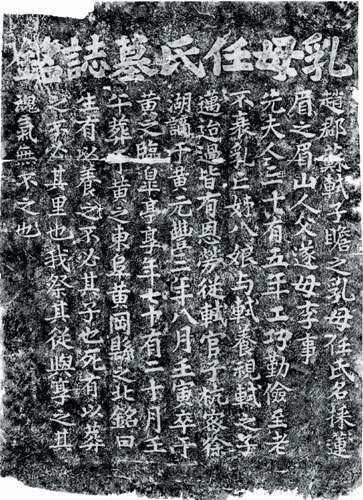 乳母任氏墓誌銘
趙郡蘇軾子瞻之乳母任氏名採蓮
眉之眉山人父遂母李事
先夫人三十有五年工巧勤儉至老
不衰乳亡姊八娘与軾養視軾之子
邁迨過皆有恩勞從軾官于杭密徐
湖謫于黃元豐三年八月壬寅卒于
黃之臨皋亭享年七十有二十月壬
午葬于黃之東阜黃岡縣之北銘曰
生有以養之不必其子也死有以葬
之不必其里也我祭其從與享之其
魂氣無不之也